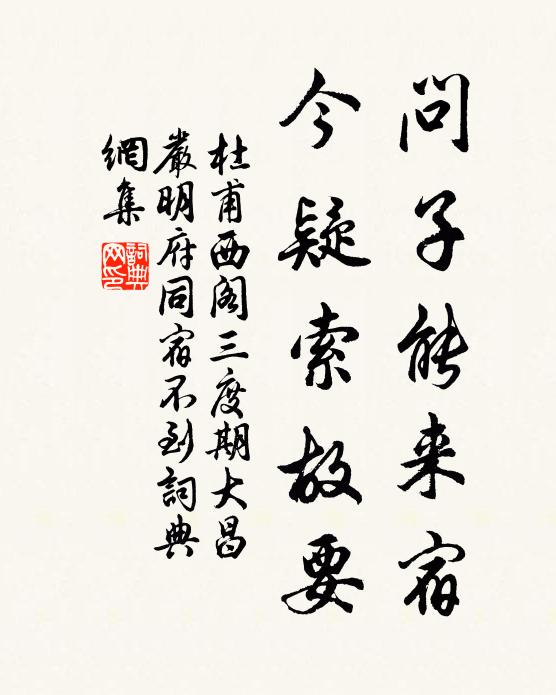 問子能来宿
今疑索故要
杜甫西阁三度期大昌
嚴明府同宿不到詞典
網集
詞典
网印